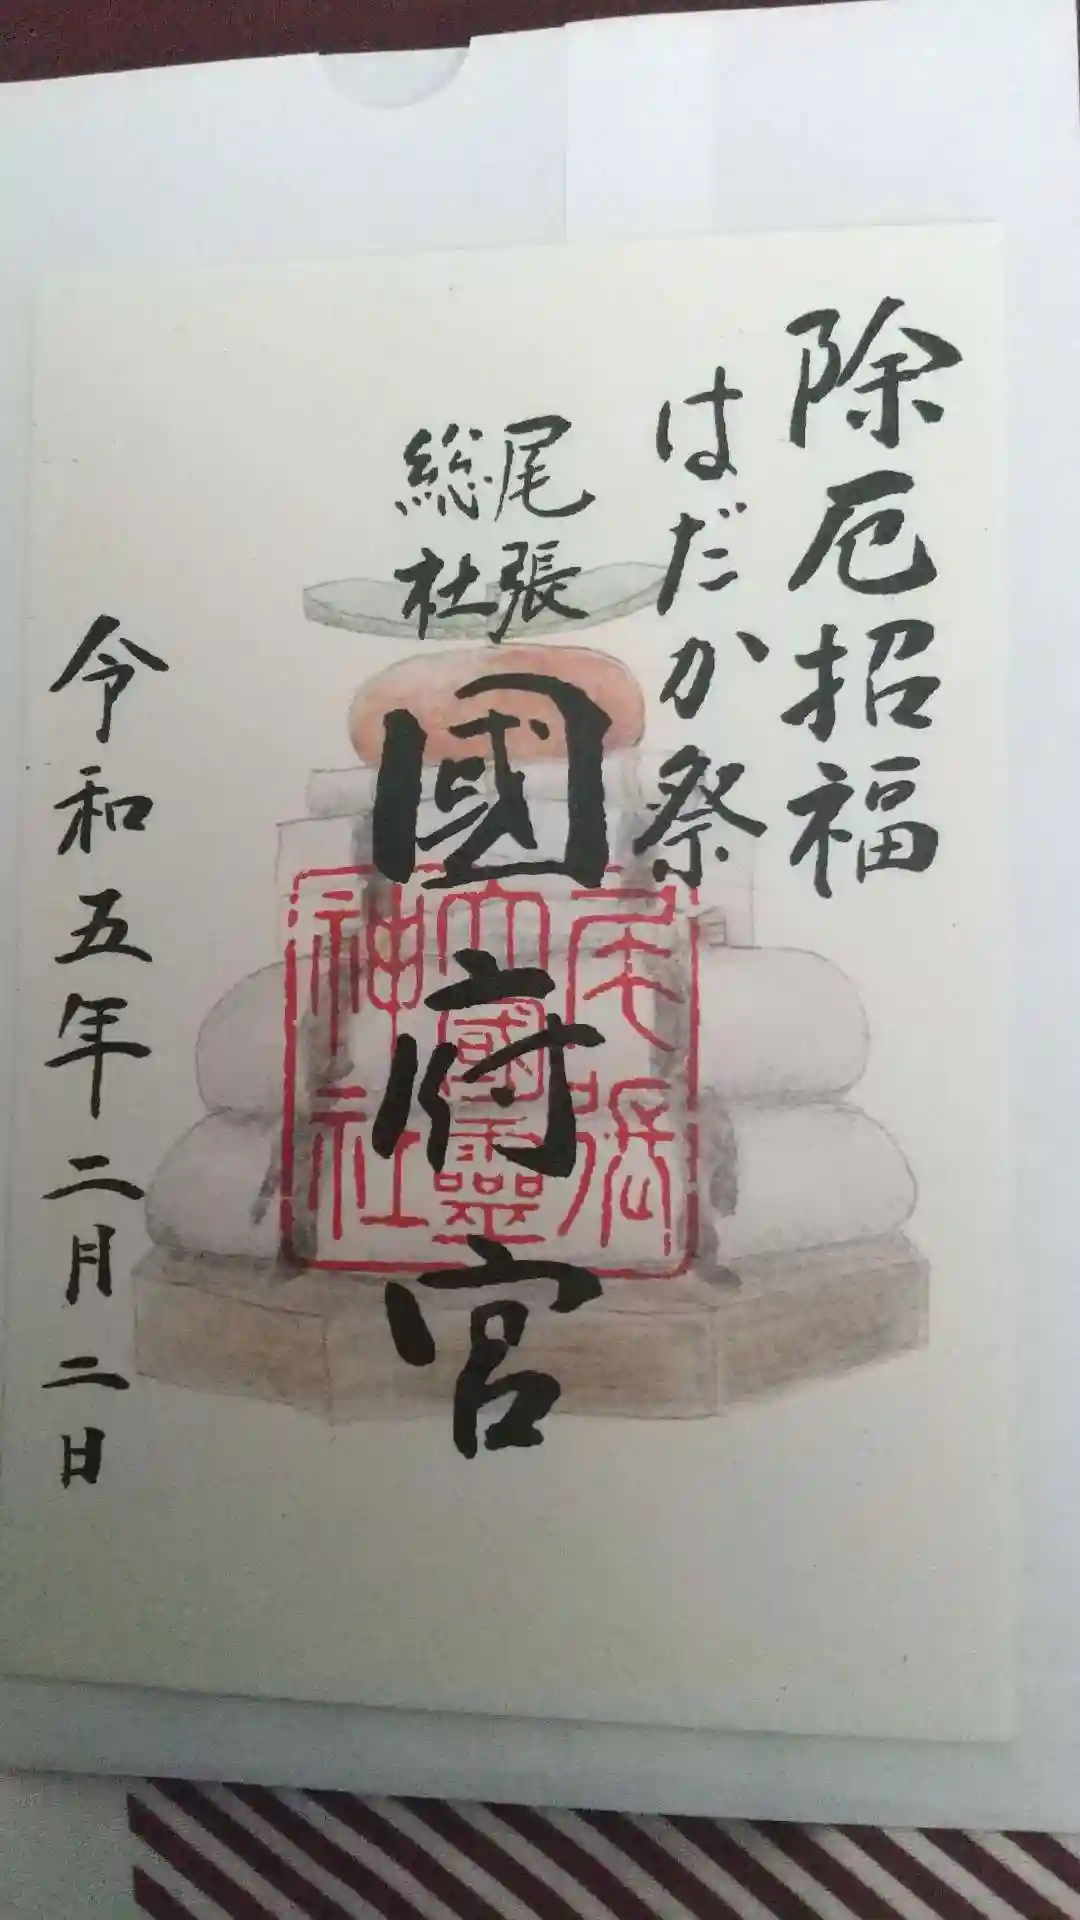 除厄招福
はだか祭
尾張
総社
國府宮
尾張
大國霊
神社
令和五年二月二日